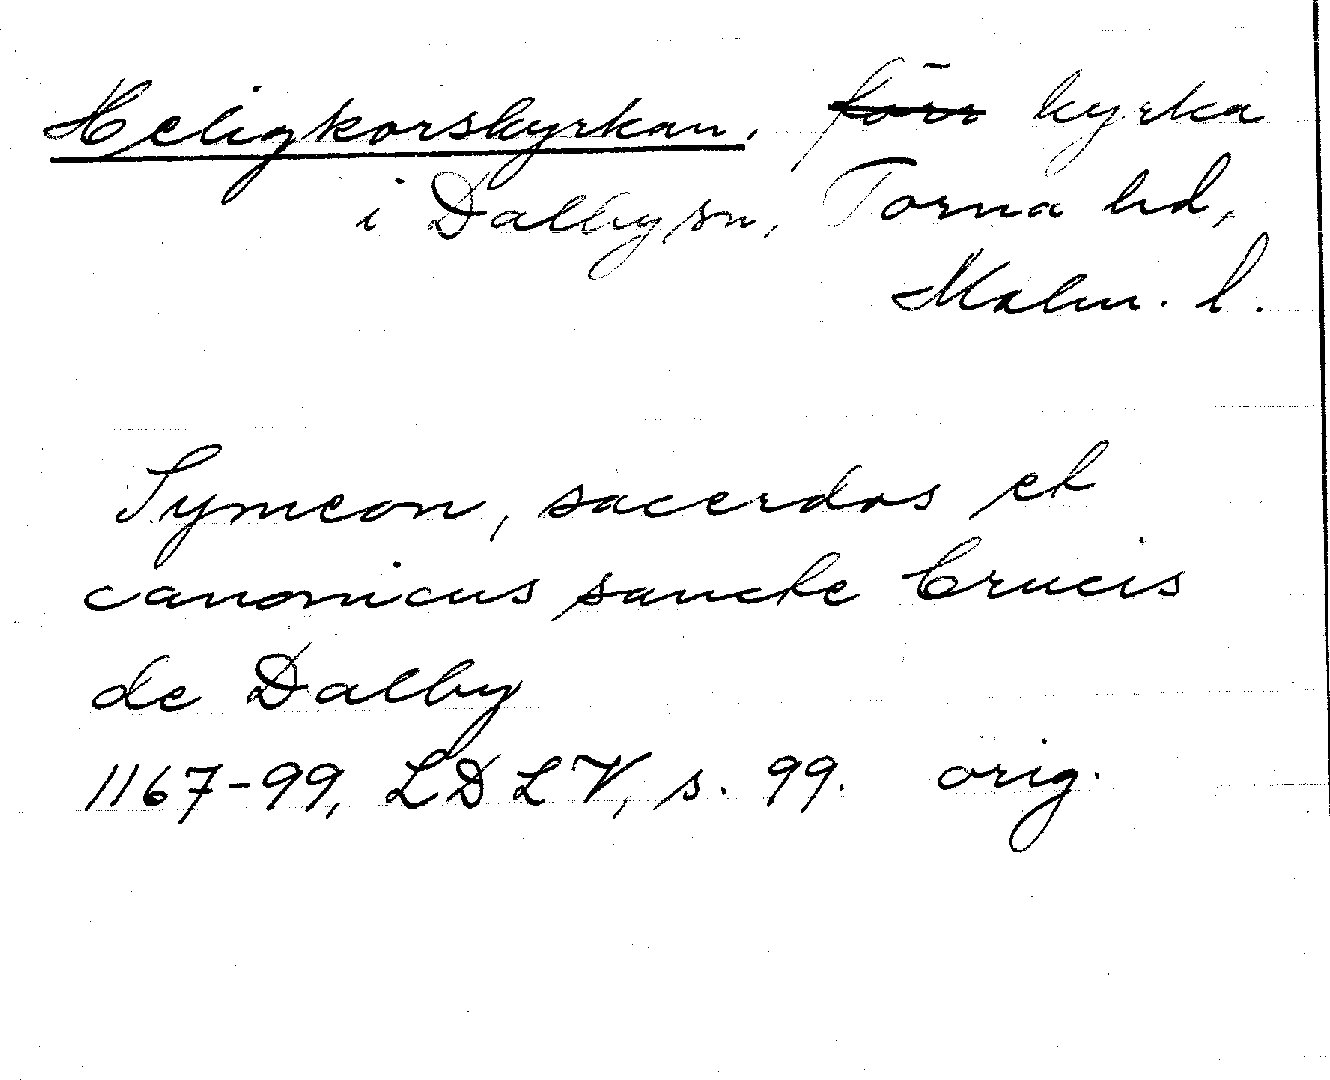 Heligkorskyrkan, förr kyrka
i Dalby sn, Torna hd,
Malm. l.
Symeon, sacerdos et
canonicus sancte Crucis
de Dalby
1167-99, LDLV, s. 99. orig.